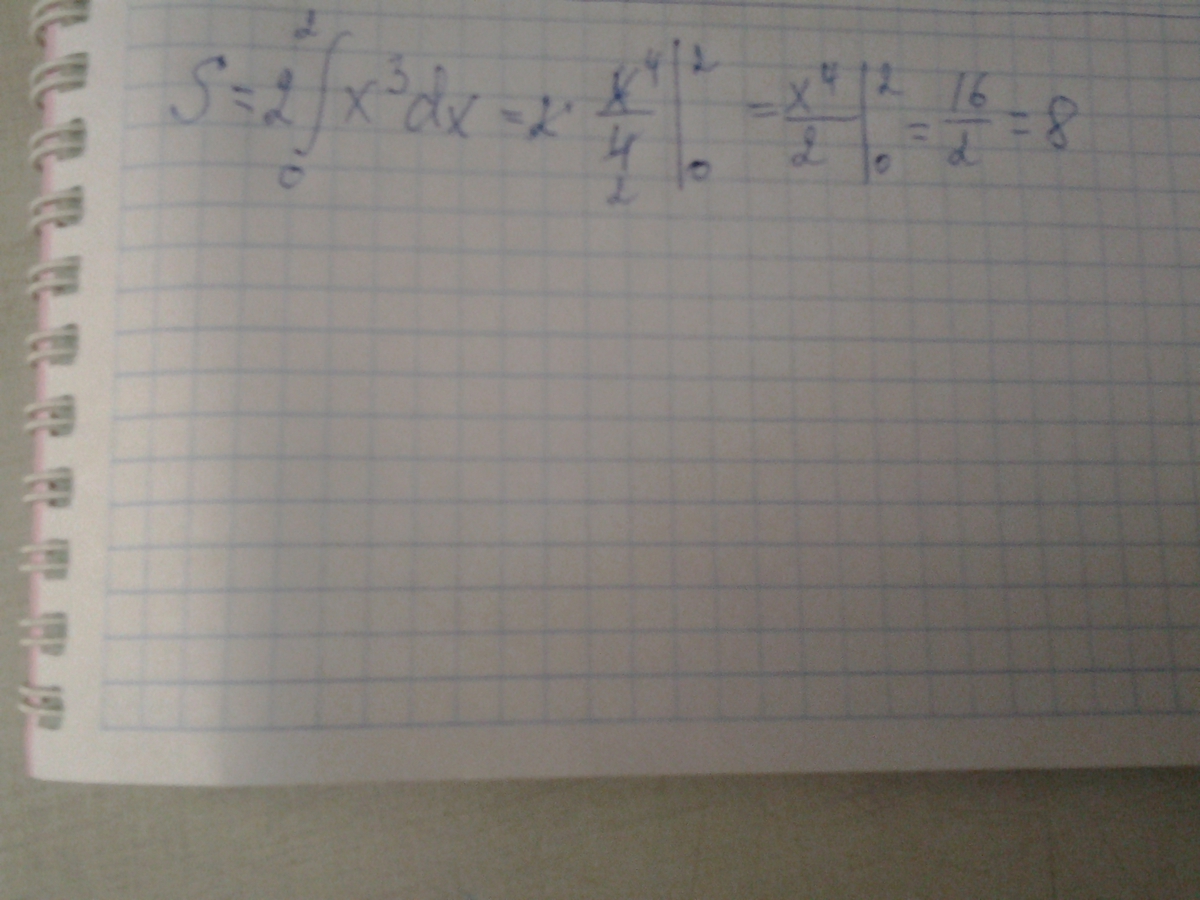 S = 2 ∫₀² x³dx = 2 · x⁴/4 |₀² = x⁴/2 |₀² = 16/2 = 8
2